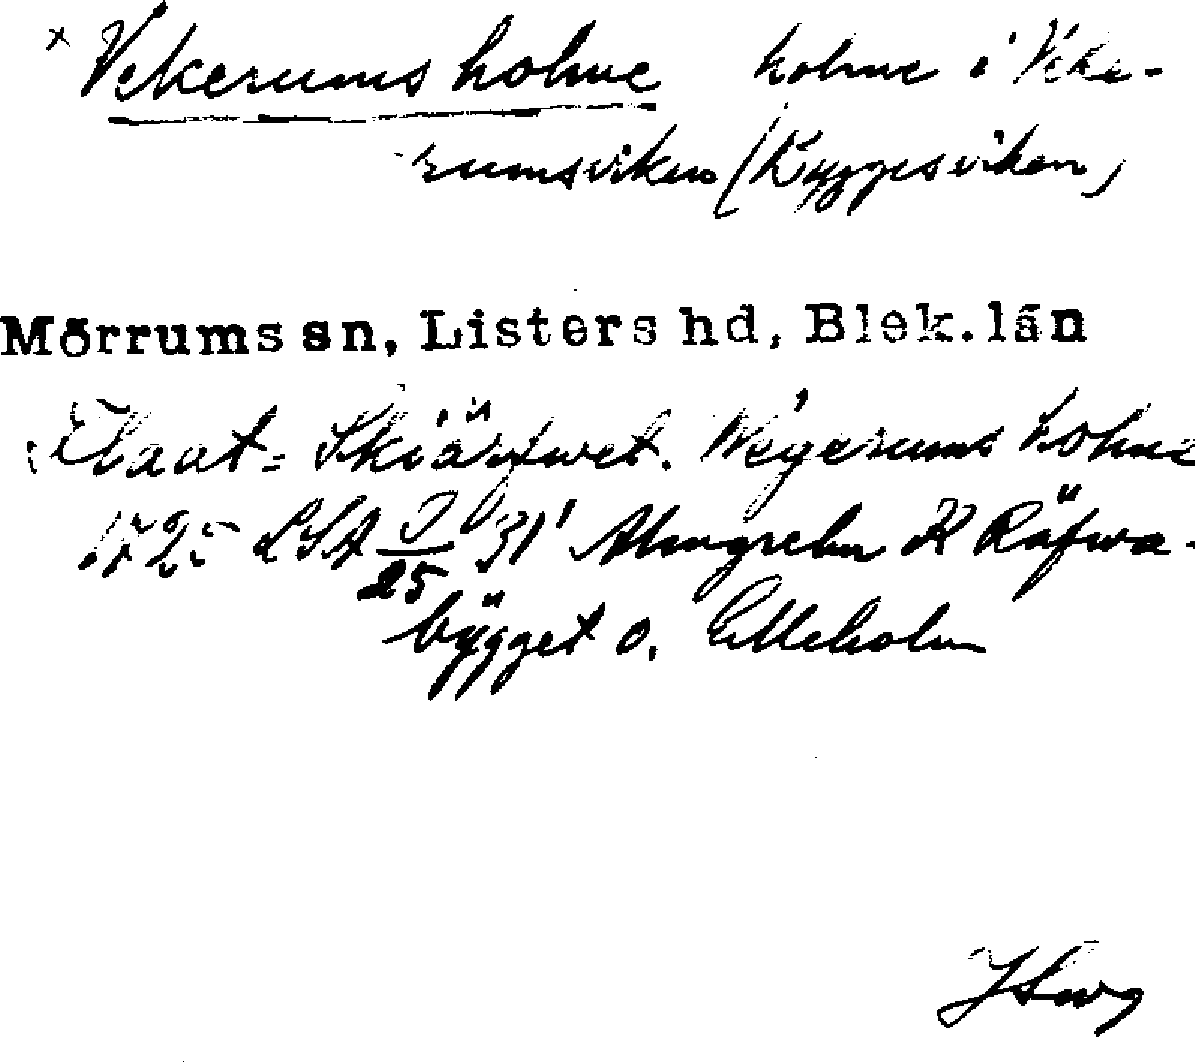 × Vekerumsholme holme i Veke-
rumsviken (Kyggesviken)
Mörrums sn, Listers hd, Blek. län
Skiärfwet. Wegerums holme
1725 LSA I/25 31' Almgrehn K Räfwa-
bÿgget o. Elleholm